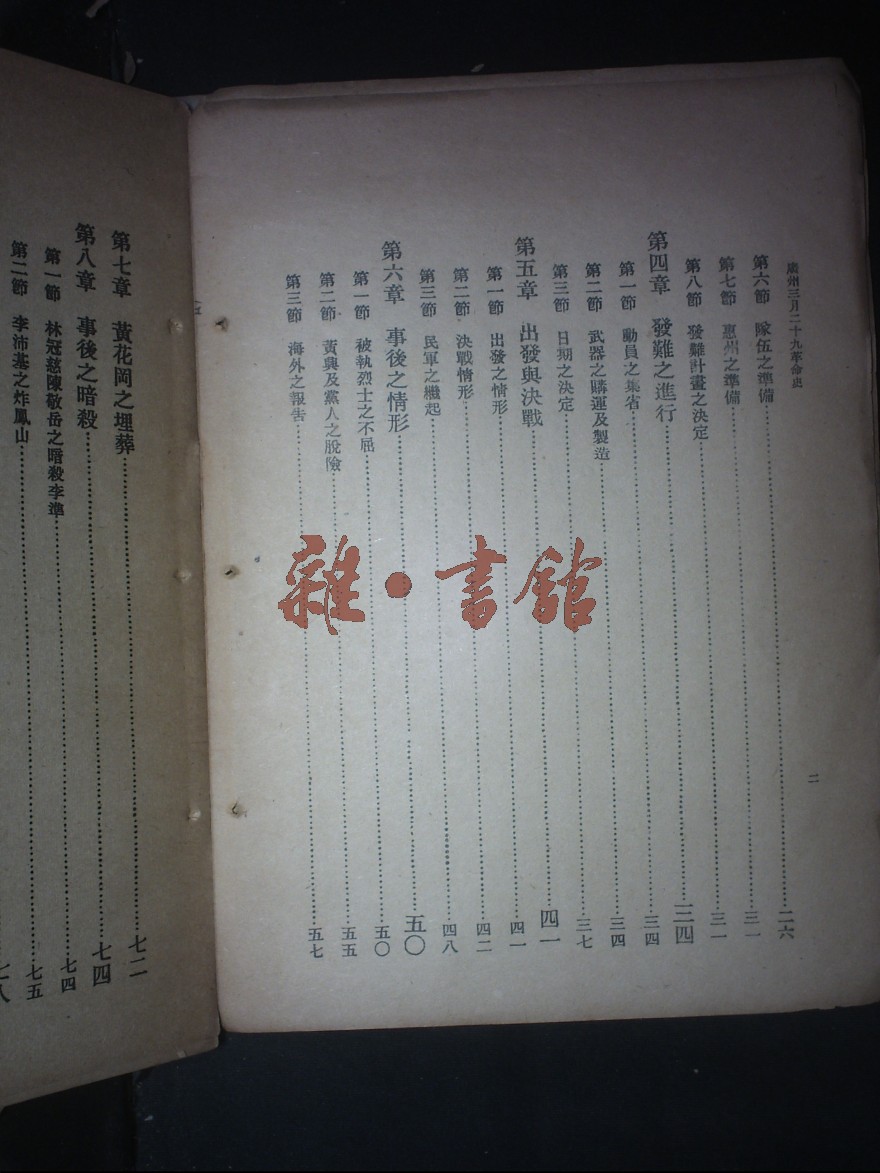 廣州三月二十九革命史
二
第六節 隊伍之準備 二六
第七節 惠州之準備 三一
第八節 發難計畫之決定 三一
第四章 發難之進行 三四
第一節 動員之集省 三四
第二節 武器之購運及製造 三四
第三節 日期之決定 三七
第五章 出發與決戰 四一
第一節 出發之情形 四一
第二節 決戰情形 四二
第三節 民軍之繼起 四八
第六章 事後之情形 五〇
第一節 被執烈士之不屈 五〇
第二節 黃興及黨人之脫險 五五
第三節 海外之報告 五七
第七章 黃花岡之埋葬 七二
第八章 事後之暗殺 七四
第一節 林冠慈陳敬岳之暗殺李準 七四
第二節 李沛基之炸鳳山 七五
七八
雜·書館